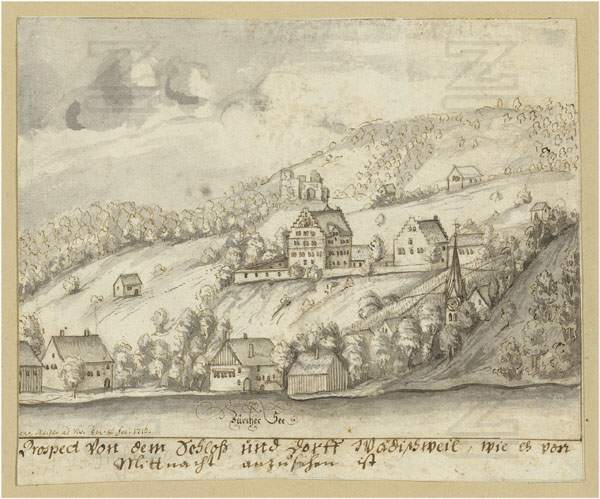 Züricher See
Prospect Von dem Schloß und Dorff Wädischweil, wie es von
Mittnacht anzusehen ist